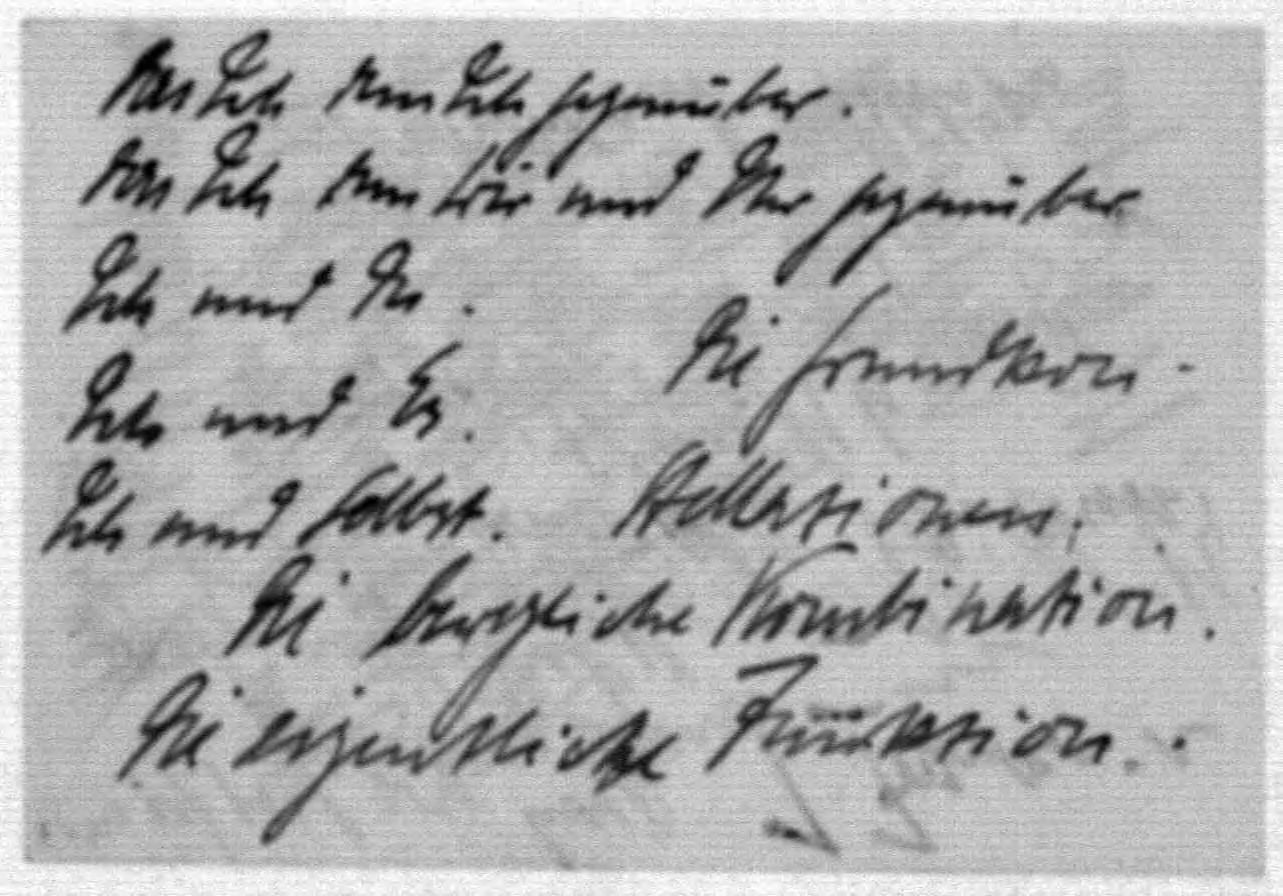 Das Ich dem Ich gegenüber.
Das Ich dem Wir und Ihr gegenüber
Ich und Du.
Ich und Es.
Ich und Selbst.
Die Grundkon-
stellationen.
Die Kombination.
Die eigentliche Funktion.